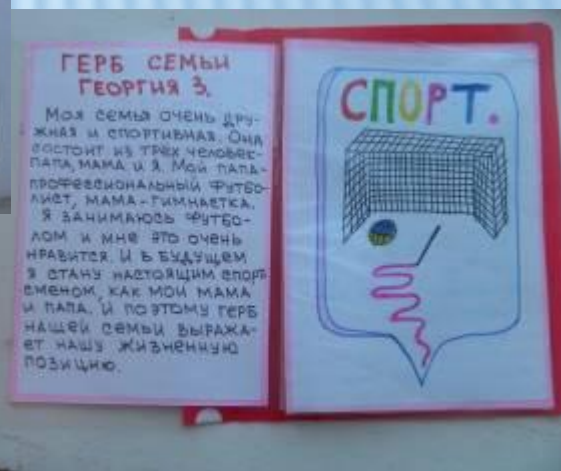 ГЕРБ СЕМЬИ
ГЕОРГИЯ З.
Моя семья очень дру-
жная и спортивная. Она
состоит из трех человек-
папа, мама и я. Мой папа-
профессиональный футбо-
лист, мама-гимнастка.
Я занимаюсь футбо-
лом и мне это очень
нравится. И в будущем
я стану настоящим спорт
сменом, как мои мама
и папа. И поэтому герб
нашей семьи выража-
ет нашу жизненную
позицию.
СПОРТ.